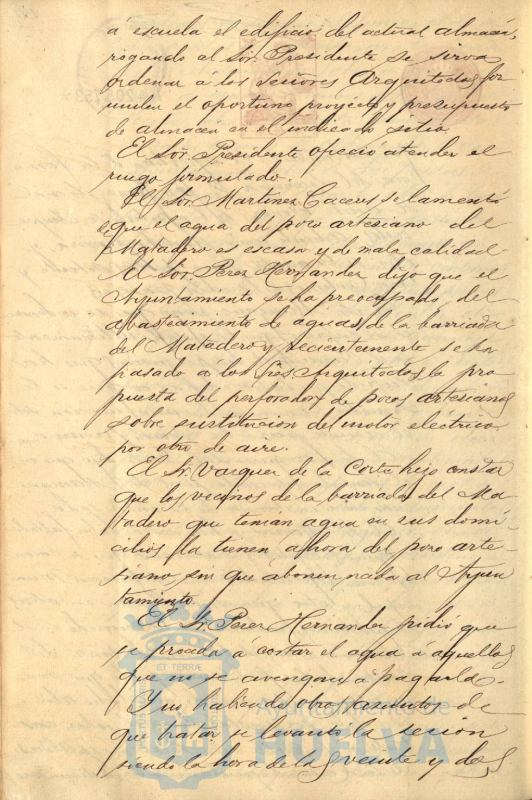 á escuela el edificio del actual almacén,
rogando al Sor. Presidente se sirva
ordenar á los Señores Arquitectos for
mulen el oportuno proyecto y presupuesto
de almacén en el indicado sitio.
El Sor. Presidente ofreció atender el
ruego formulado.
El Sor. Martinez Caceres se lamentó
que el agua del pozo artesiano del
Matadero es escasa y de mala calidad
El Sor. Perez Hernandez dijo que el
Ayuntamiento se ha preocupado del
abastecimiento de aguas de la barriada
del Matadero y recientemente se ha
pasado a los Sres. Arquitectos la pro
puesta del perforador de pozos artesianos
sobre sustitucion del motor electrico
por otro de aire.
El Sr. Vazquez de la Corte hizo constar
que los vecinos de la barriada del Ma-
tadero que tenian agua en sus domi-
cilios la tienen ahora del pozo arte-
siano, sin que abonen nada al Ayun
tamiento.
El Sr. Perez Hernandez pidio que
se proceda á cortar el agua a aquellos
que no se avengan á pagarla.
Y no habiendo otros asuntos de
que tratar se levantó la sesion
siendo la hora de las veinte y dos
ET TERRÆ
Ayuntamiento de
HUELVA